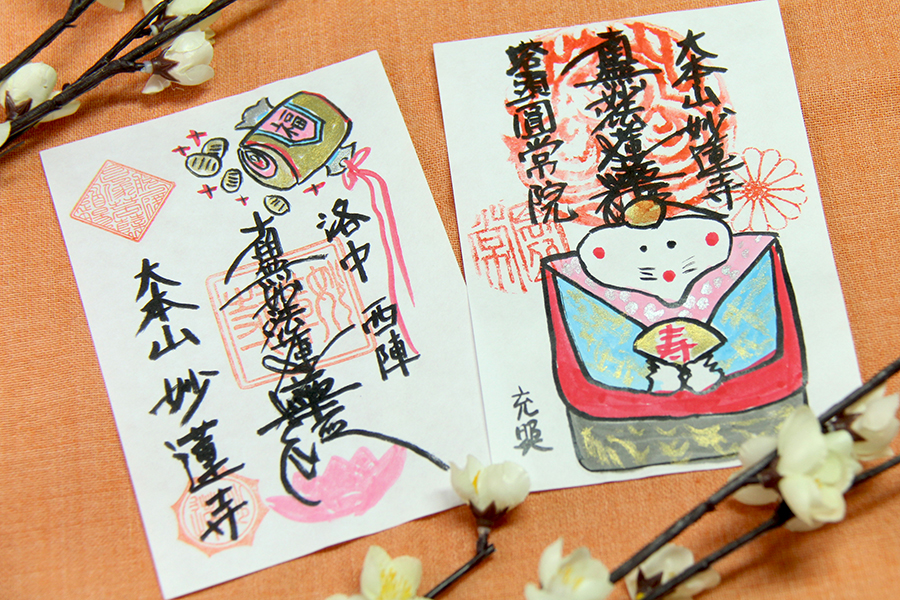 福
洛中 西陣
南無妙法蓮華経
大本山 妙蓮寺
大本山妙蓮寺
南無妙法蓮華経
圓常院
寿
充照